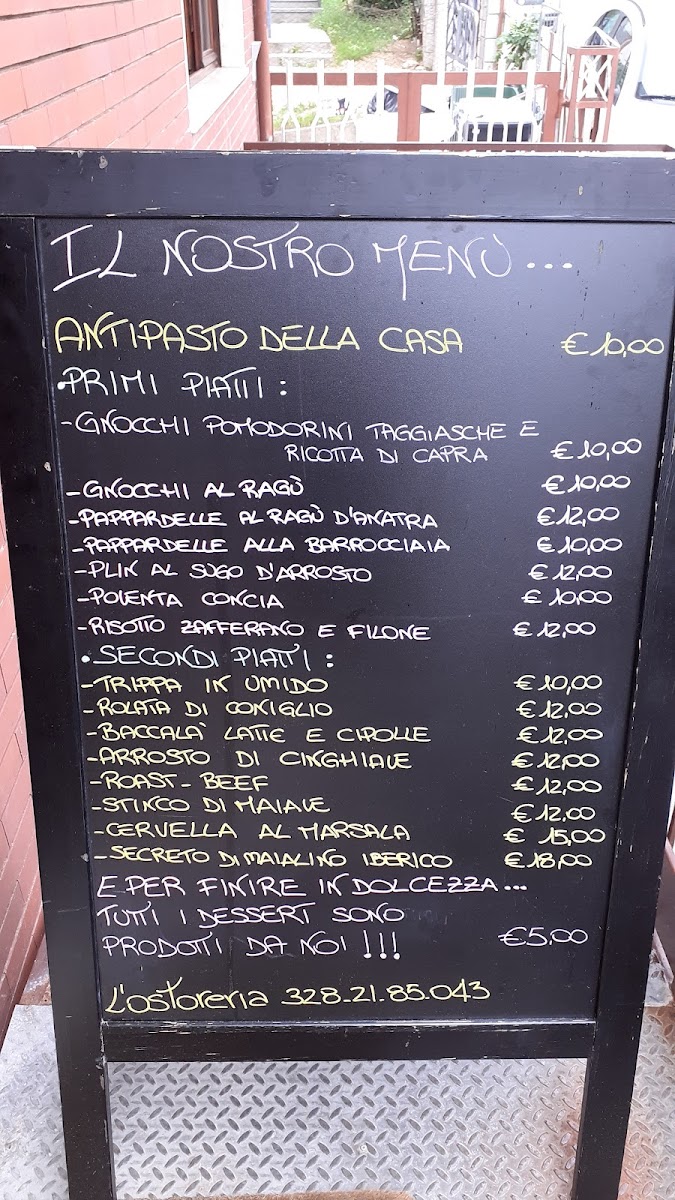 IL NOSTRO MENÙ...
ANTIPASTO DELLA CASA €10,00
•PRIMI PIATTI:
-GNOCCHI POMODORINI TAGGIASCHE E
RICOTTA DI CAPRA €10,00
-GNOCCHI AL RAGÙ €10,00
-PAPPARDELLE AL RAGÙ D'ANATRA €12,00
-PAPPARDELLE ALLA BARROCCIAIA €10,00
-PLIN AL SUGO D'ARROSTO €12,00
-POLENTA CONCIA €10,00
-RISOTTO ZAFFERANO E FILONE €12,00
•SECONDI PIATTI:
-TRIPPA IN UMIDO €10,00
-ROLATA DI CONIGLIO €12,00
-BACCALA' LATTE E CIPOLLE €12,00
-ARROSTO DI CINGHIALE €12,00
-ROAST-BEEF €12,00
-STINCO DI MAIALE €12,00
-CERVELLA AL MARSALA €15,00
-SECRETO DI MAIALINO IBERICO €18,00
E PER FINIRE IN DOLCEZZA...
TUTTI I DESSERT SONO
PRODOTTI DA NOI!!! €5,00
L'ostoreria 328.21.85.043